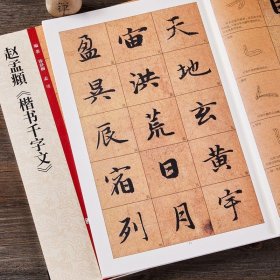 天地玄黄宇
宙洪荒日月
盈昃辰宿列
赵孟頫《楷书千字文》